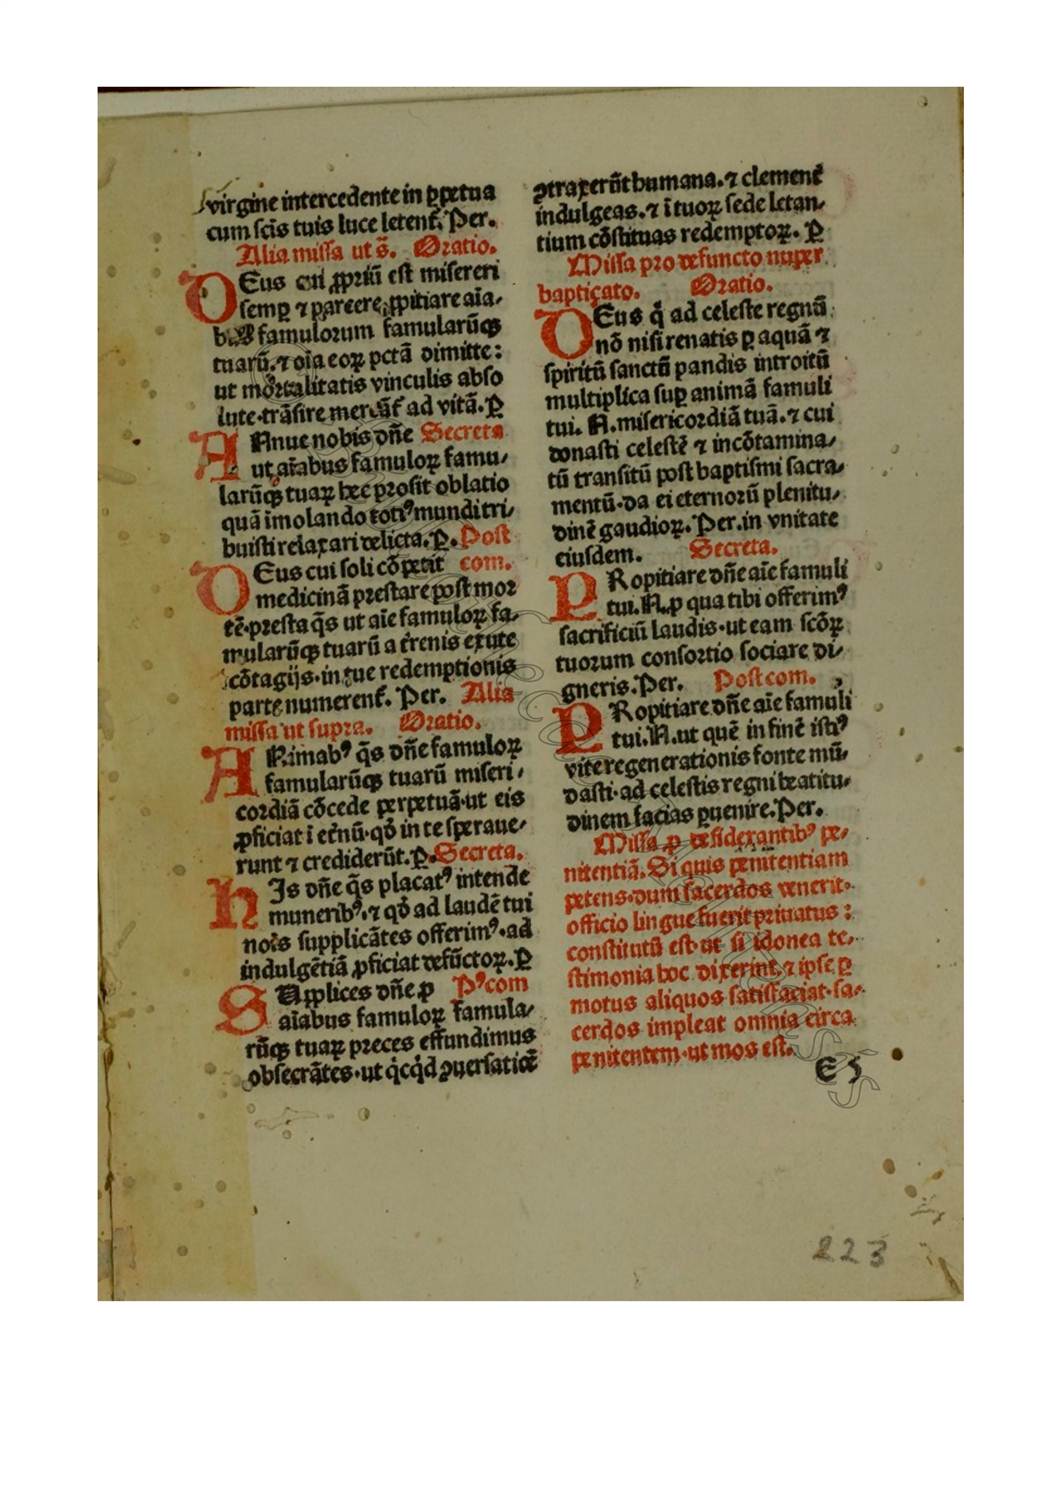 virgine intercedente in ꝑpetua
cum scīs tuis luce letenť. Per.
Alia missa ut s̄. Oratio.
DEus cui ꝓpriū est misereri
semꝑ ⁊ parcere ꝓpitiare aīa-
bus famulorum famularūqꝫ
tuarū.⁊ oīa eoꝝ pctā dimitte:
ut mortalitatis vinculis abso
lute·trāsire mereāť ad vitā.P̱
ANnue nobis dn̄e Secreta
ut aīabus famuloꝝ famu-
larūqꝫ tuaꝝ hec prosit oblatio
quā īmolando totiꝰ mundi tri-
buisti relaxari delicta.P̱. Post
DEus cui soli cōpetit com.
medicinā prestare post mor
tē·presta q̄s ut aīe famuloꝝ fa-
mularūqꝫ tuarū a ťrenis exute
cōtagijs·in tue redemptionis
parte numerenť. Per. Alia
missa ut supra. Oratio.
ANimabꝰ q̄s dn̄e famuloꝝ
famularūqꝫ tuarū miseri-
cordiā cōcede perpetuā·ut eis
ꝓficiat ī eťnū·qđ in te speraue-
runt ⁊ crediderūt.P̱. Secreta.
HIs dn̄e q̄s placatꝰ intende
muneribꝰ.⁊ qđ ad laudē tui
noīs supplicātes offerimꝰ·ad
indulgētiā ꝓficiat defūctoꝝ.P̱
SUpplices dn̄e ꝓ Pꝰcom
aīabus famuloꝝ famula-
rūqꝫ tuaꝝ preces effundimus
obsecrātes·ut q̇cq̇d ꝯuersatiōē
ꝯtraxerūt humana.⁊ clemenť
indulgeas.⁊ ī tuoꝝ sede letan-
tium cōstituas redemptoꝝ. P̱
Missa pro defuncto nuper
baptiçato. Oratio.
DEus q̇ ad celeste regnū
nō nisi renatis ꝑ aquā ⁊
spiritū sanctū pandis introitū
multiplica suꝑ animā famuli
tui. N.misericordiā tuā.⁊ cui
donasti celestē ⁊ incōtamina-
tū transitū post baptismi sacra-
mentū·da ei eternorū plenitu-
dinē gaudioꝝ. Per.in vnitate
eiusdem. Secreta.
PRopitiare dn̄e aīe famuli
tui.N.ꝓ qua tibi offerimꝰ
sacrificiū laudis·ut eam scōꝝ
tuorum consortio sociare di-
gneris. Per. Postcom.
PRopitiare dn̄e aīe famuli
tui.N.ut quē in finē istiꝰ
vite regenerationis fonte mū-
dasti·ad celestis regni beatitu-
dinem facias ꝑuenire. Per.
Missa ꝓ desiderantibꝰ pe-
nitentiā. Si quis penitentiam
petens·dum sacerdos venerit·
officio lingue fuerit priuatus:
constitutū est·ut si idonea te-
stimonia hoc dixerint.⁊ ipse ꝑ
motus aliquos satisfaciat·sa-
cerdos impleat omnia circa
penitentem·ut mos est.
223